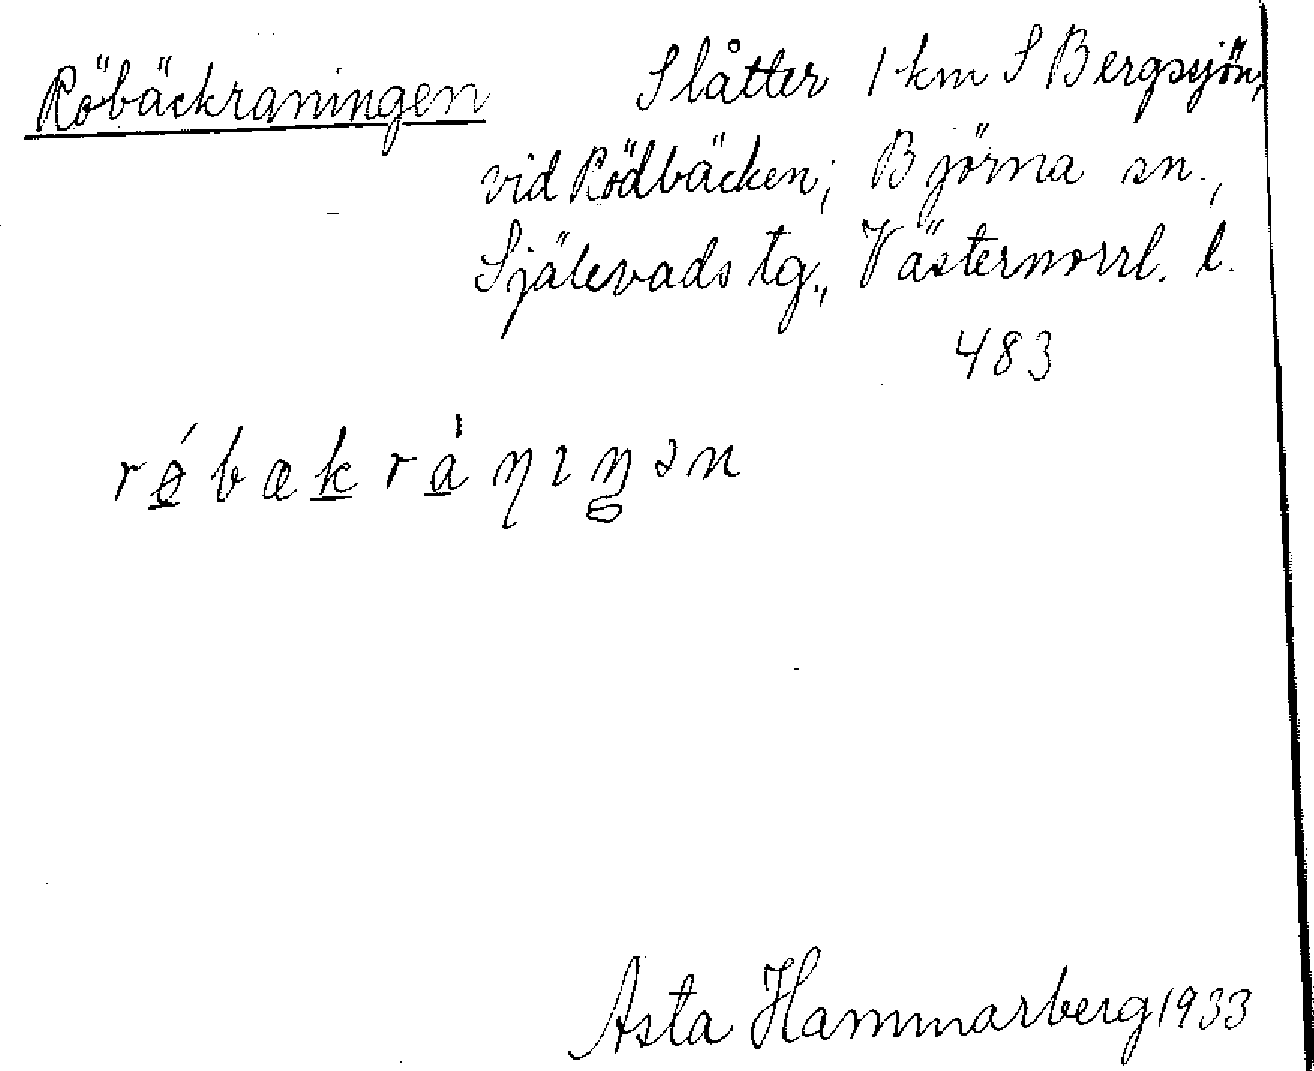 Röbäckraningen Slåtter 1 km S Bergsjön,
vid Rödbäcken; Björna sn.,
Själevads tg., Västernorrl. l.
483
rǿbækrànıŋən
Asta Hammarberg 1933